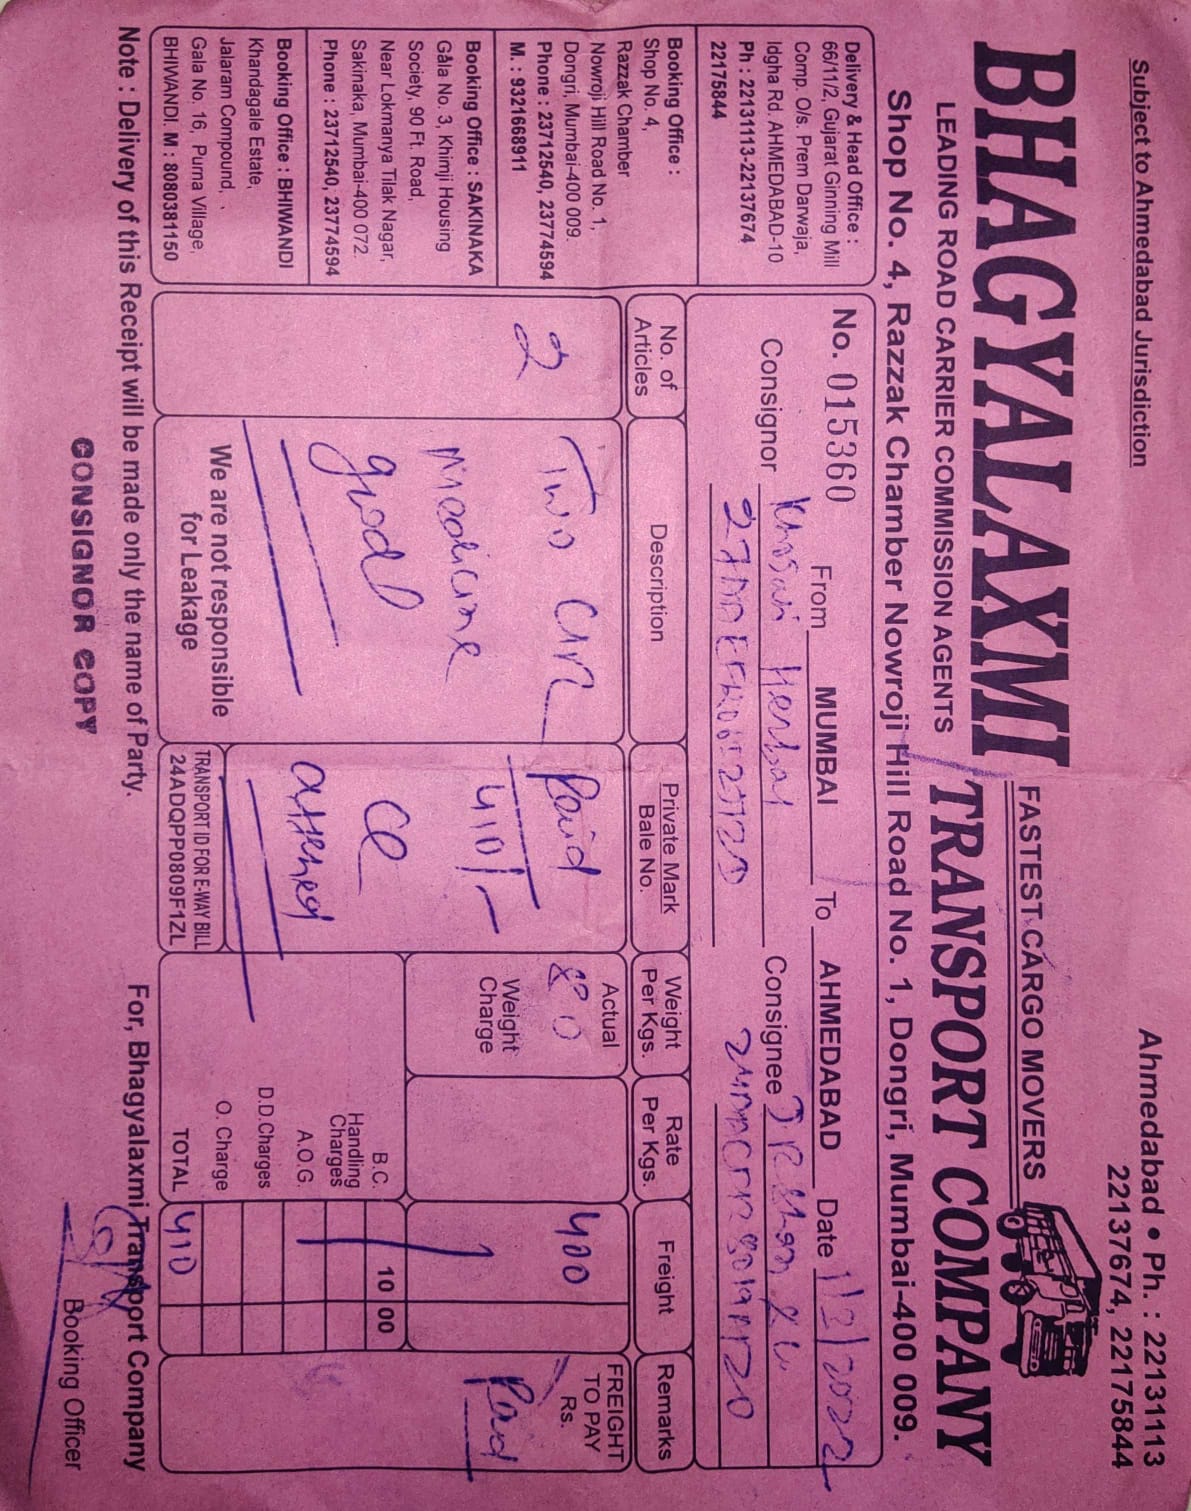 Subject to Ahmedabad Jurisdiction
Ahmedabad • Ph. : 22131113
22137674, 22175844
BHAGYALAXMI
FASTEST CARGO MOVERS
TRANSPORT COMPANY
LEADING ROAD CARRIER COMMISSION AGENTS
Shop No. 4, Razzak Chamber Nowroji Hill Road No. 1, Dongri, Mumbai-400 009.
Delivery & Head Office :
66/11/2, Gujarat Ginning Mill
Comp. O/s. Prem Darwaja,
Idgha Rd. AHMEDABAD-10
Ph : 22131113-22137674
22175844
Booking Office :
Shop No. 4,
Razzak Chamber
Nowroji Hill Road No. 1,
Dongri, Mumbai-400 009.
Phone : 23712540, 23774594
M. : 9321668911
Booking Office : SAKINAKA
Gala No. 3, Khimji Housing
Society, 90 Ft. Road,
Near Lokmanya Tilak Nagar,
Sakinaka, Mumbai-400 072.
Phone : 23712540, 23774594
Booking Office : BHIWANDI
Khandagale Estate,
Jalaram Compound,
Gala No. 16, Purna Village,
BHIWANDI. M : 8080381150
No. 015360 From MUMBAI To AHMEDABAD Date 1/3/2022
Consignor Herbal Consignee
No. of Articles
Description
Private Mark Bale No.
Weight Per Kgs.
Rate Per Kgs.
Freight
Remarks
2
Two
medicine
good
We are not responsible
for Leakage
Paid
410/-
TRANSPORT ID FOR E-WAY BILL
24ADQPP0809F1ZL
Actual
80
Weight
Charge
400
FREIGHT
TO PAY
Rs.
Paid
B.C. 10 00
Handling
Charges
A.O.G.
D.D.Charges
O. Charge
TOTAL 410
Note : Delivery of this Receipt will be made only the name of Party.
For, Bhagyalaxmi Transport Company
CONSIGNOR COPY
Booking Officer